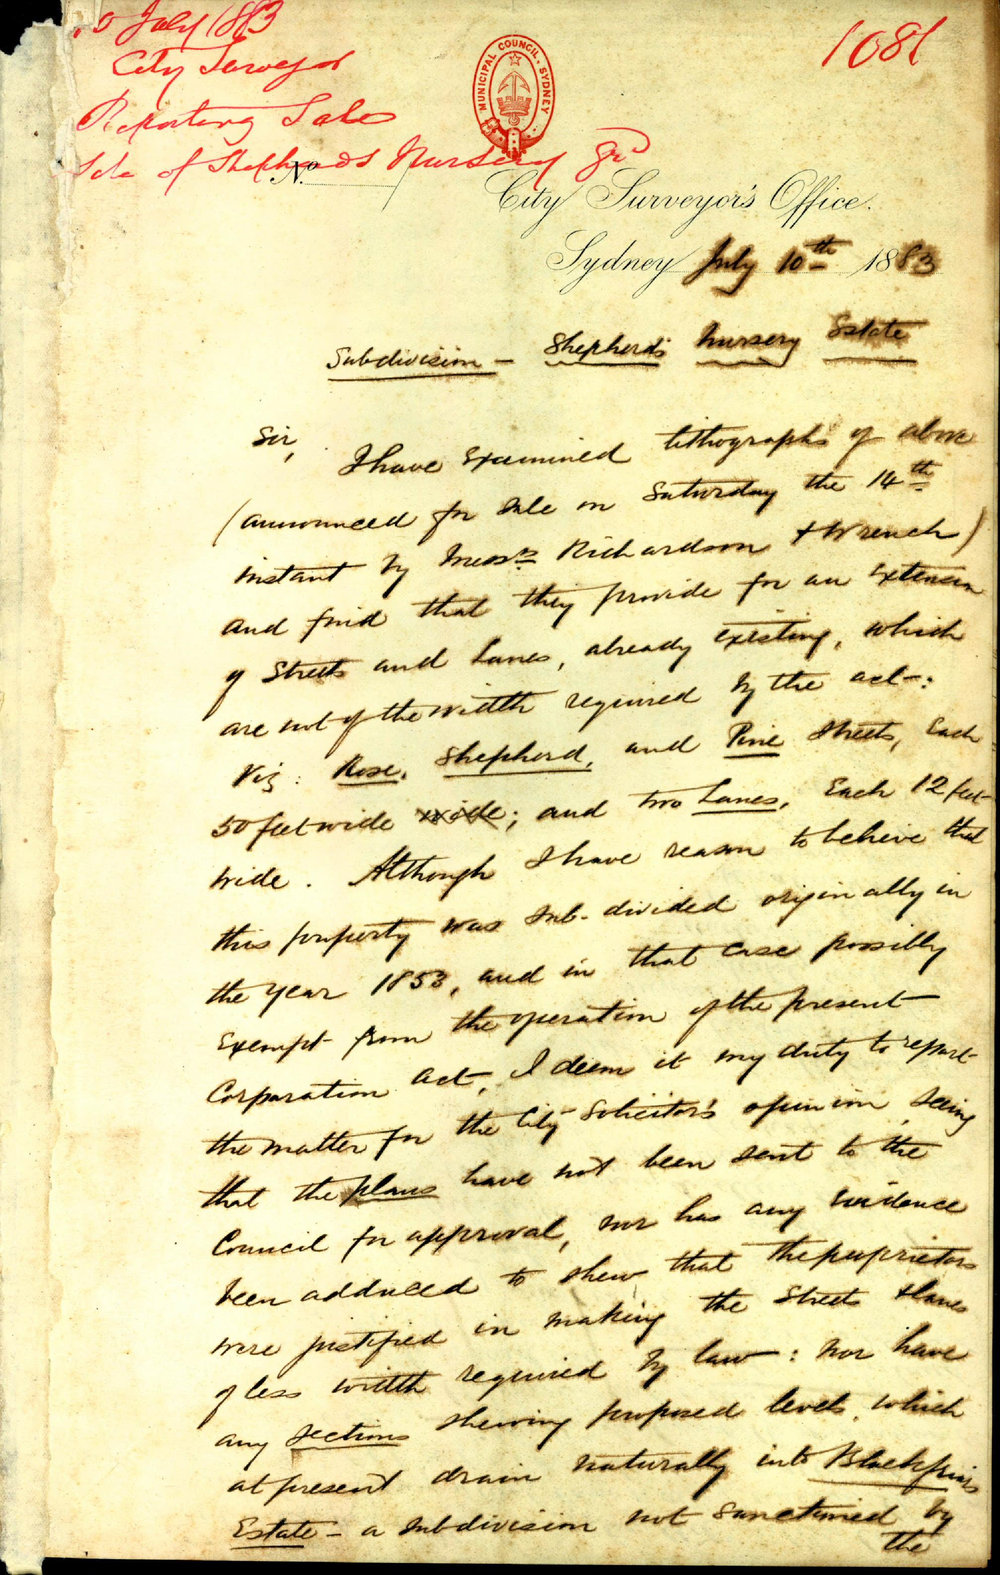 10 July 1883
City Surveyor
Reporting Sale
Sale of Shepherds Nursery Gr
1081
MUNICIPAL COUNCIL. SYDNEY
No.
City Surveyor's Office.
Sydney July 10th 1883
Subdivision - Shepherd's Nursery Estate
Sir,
I have Examined lithographs of above
(announced for sale on Saturday the 14th
instant by Messrs Richardson & Wrench)
and find that they provide for an Extension
of Streets and Lanes, already Existing, which
are not of the width required by the act:
Viz: Rose, Shepherd, and Pine Streets, Each
50 feet wide wide; and two Lanes, Each 12 feet
wide. Although I have reason to believe that
this property was Sub-divided originally in
the year 1853, and in that case possibly
Exempt from the operation of the present
Corporation Act, I deem it my duty to report
the matter for the City Solicitor's opinion seeing
that the plans have not been sent to the
Council for approval, nor has any Evidence
been adduced to shew that the proprietors
were justified in making the Streets & Lanes
of less width required by law: Nor have
any sections shewing proposed levels, which
at present drain naturally into Blackfriars
Estate - a subdivision not sanctioned by
the